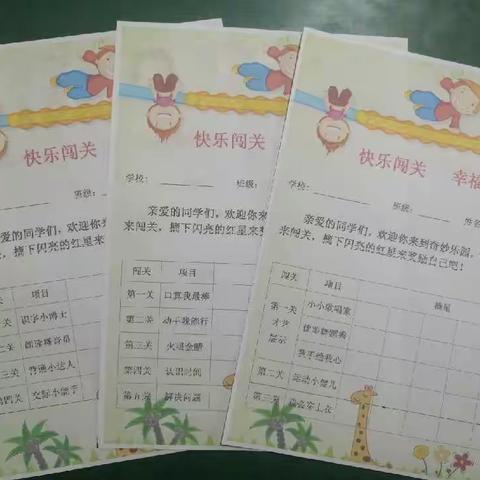 快乐闯关
班级：
亲爱的同学们，欢迎你来
来闯关，摘下闪亮的红星来奖
项目
识字小博士
普通小达人
快乐闯关
学校：
班级：
亲爱的同学们，欢迎你来
来闯关，摘下闪亮的红星来奖
闯关 项目
第一关 口算我最棒
第二关 动手我能行
第三关 火眼金睛
第四关 认识时间
第五关 解决问题
快乐闯关 幸福
学校：
班级：
姓名
亲爱的同学们，欢迎你来到奇妙乐园，
来闯关，摘下闪亮的红星来奖励自己吧！
闯关 项目 摘星
第一关 才艺展示 小小歌唱家
我手绘我心
第二关 运动小健儿